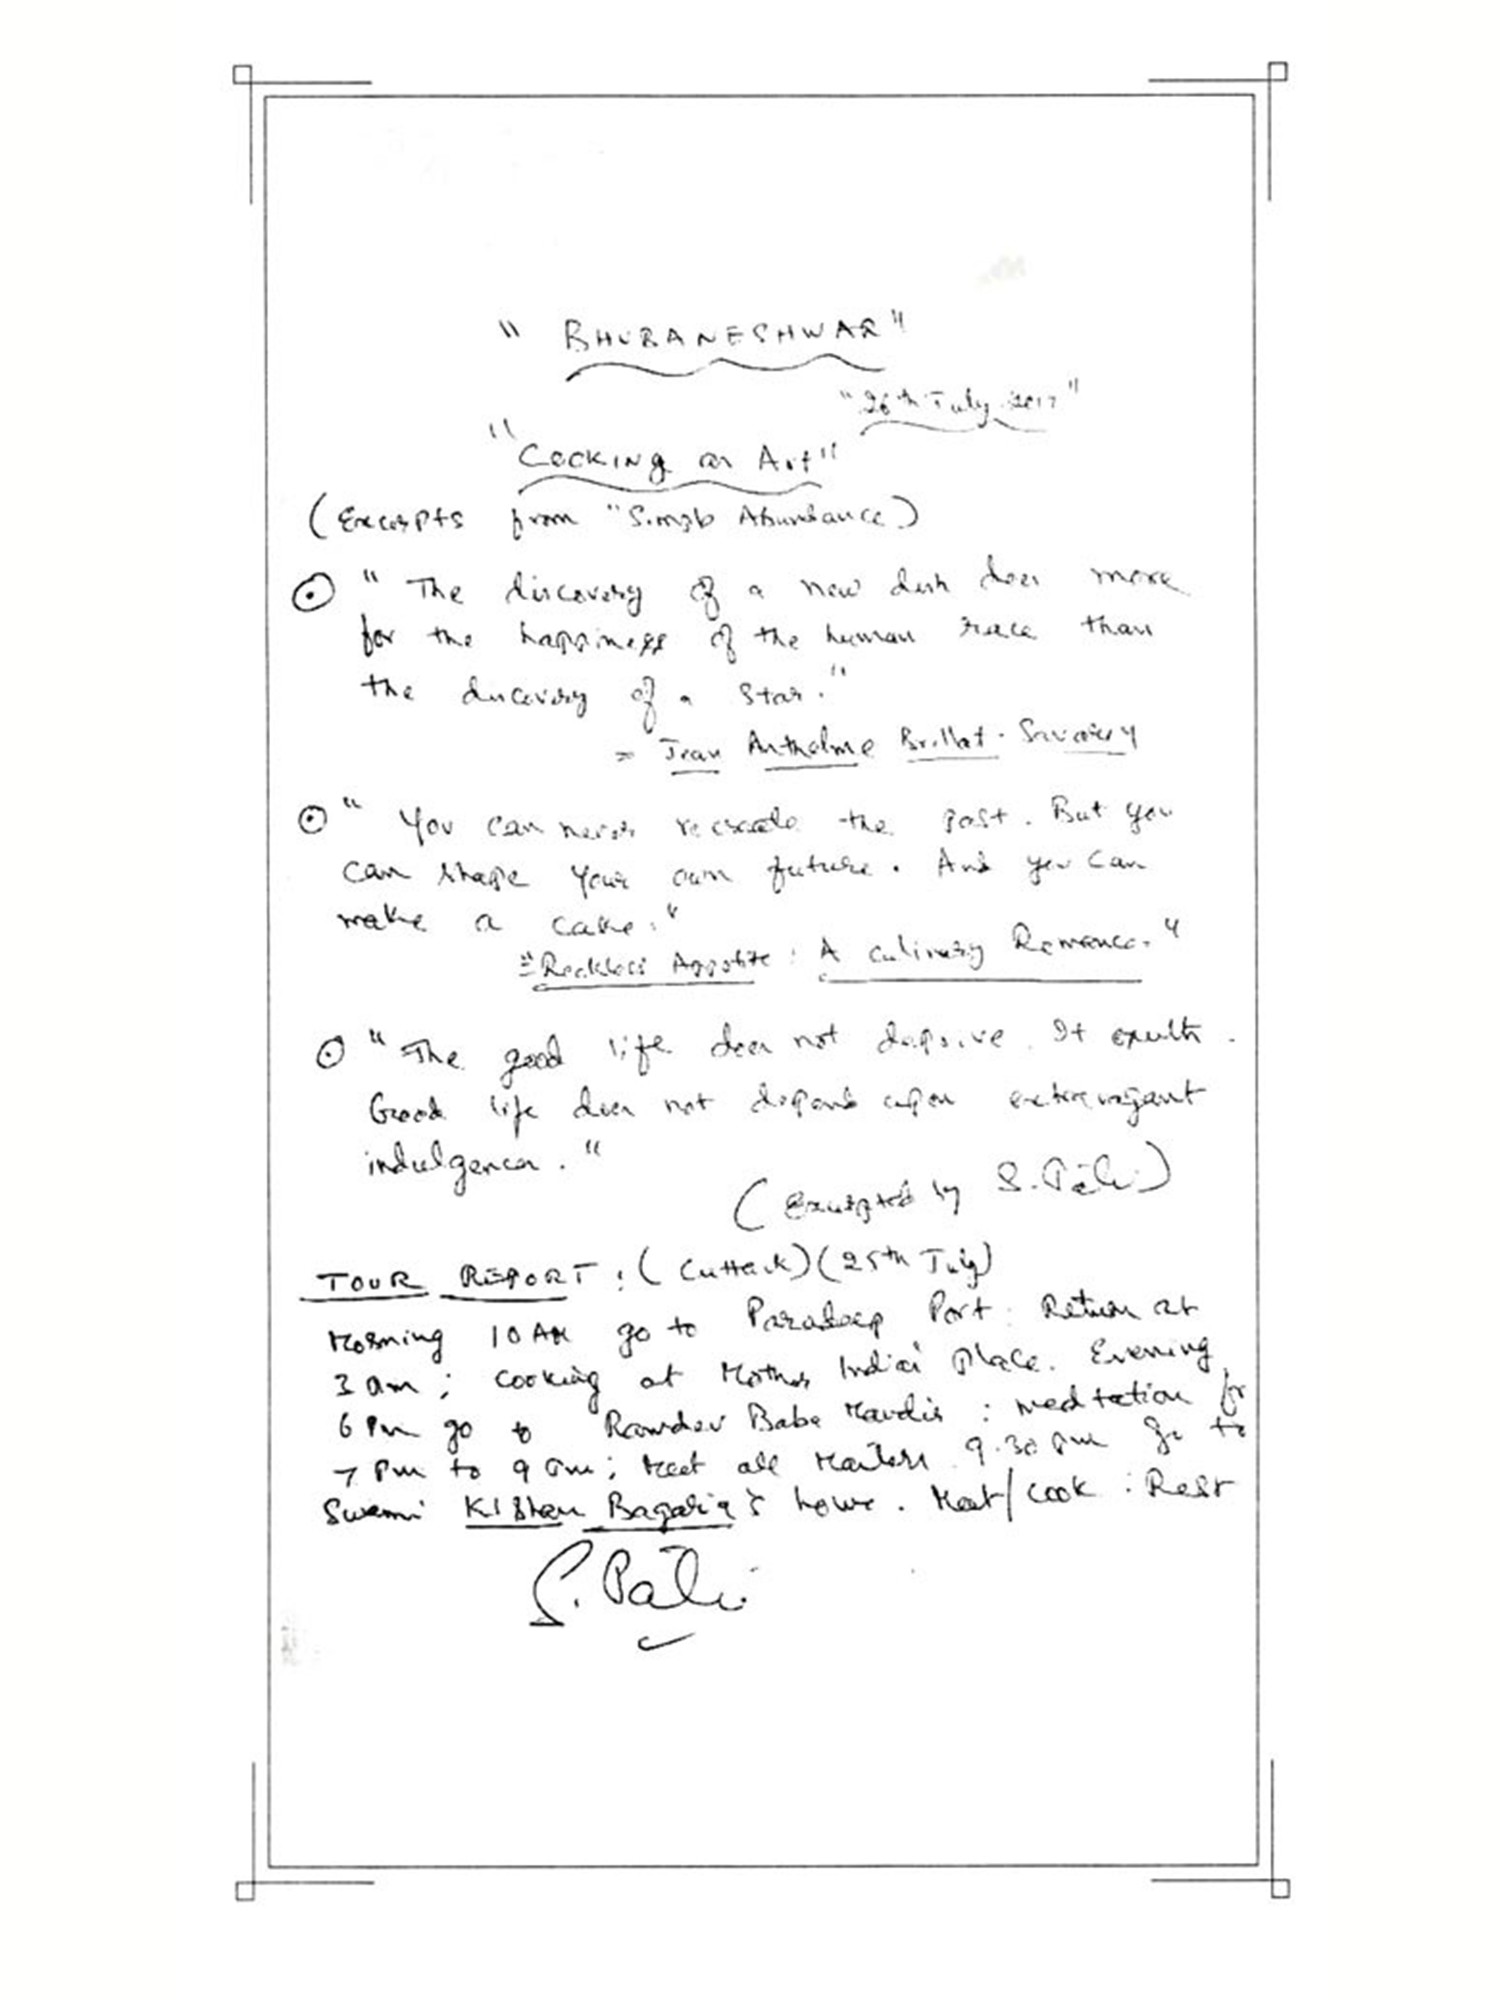 " BHUBANESHWAR "
"26th July 2017"
"Cooking as Art"
(Excerpts from "Simple Abundance)
" The discovery of a new dish does more
for the happiness of the human race than
the discovery of a star."
= Jean Anthelme Brillat-Savariy
" You can never recreate the past. But you
can shape your own future. And you can
make a cake."
="Reckless Appetite: A Culinary Romance."
"The good life does not deprive. It exults.
Good life does not depend upon extravagant
indulgence."
(Excerpted by S. Pāli)
TOUR REPORT: (Cuttack) (25th July)
Morning 10 AM go to Paradeep Port. Return at
3 am; cooking at Mother India's Place. Evening
6 Pm go to Ramdev Baba Mandir: meditation for
7 Pm to 9 Pm; Meet all 9.30 pm go to
Swami Kishan Bagaria's home. Meet/cook: Rest
S. Pāli